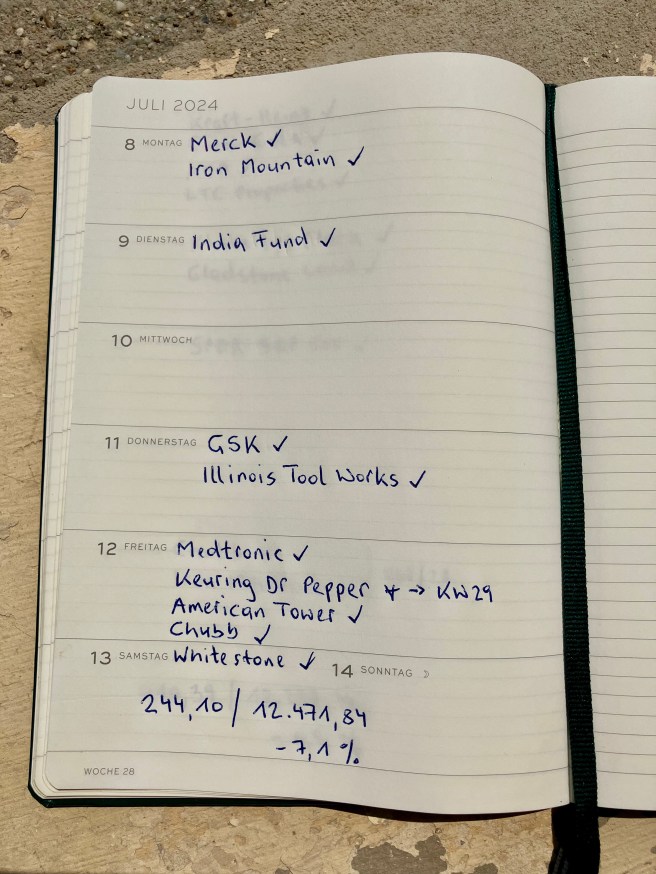 JULI 2024
8 MONTAG Merck ✓
Iron Mountain ✓
9 DIENSTAG India Fund ✓
10 MITTWOCH
11 DONNERSTAG GSK ✓
Illinois Tool Works ✓
12 FREITAG Medtronic ✓
Keuring Dr Pepper * → KW29
American Tower ✓
Chubb ✓
13 SAMSTAG Whitestone ✓ 14 SONNTAG ☽
244,10 / 12.471,84
-7,1 %
WOCHE 28